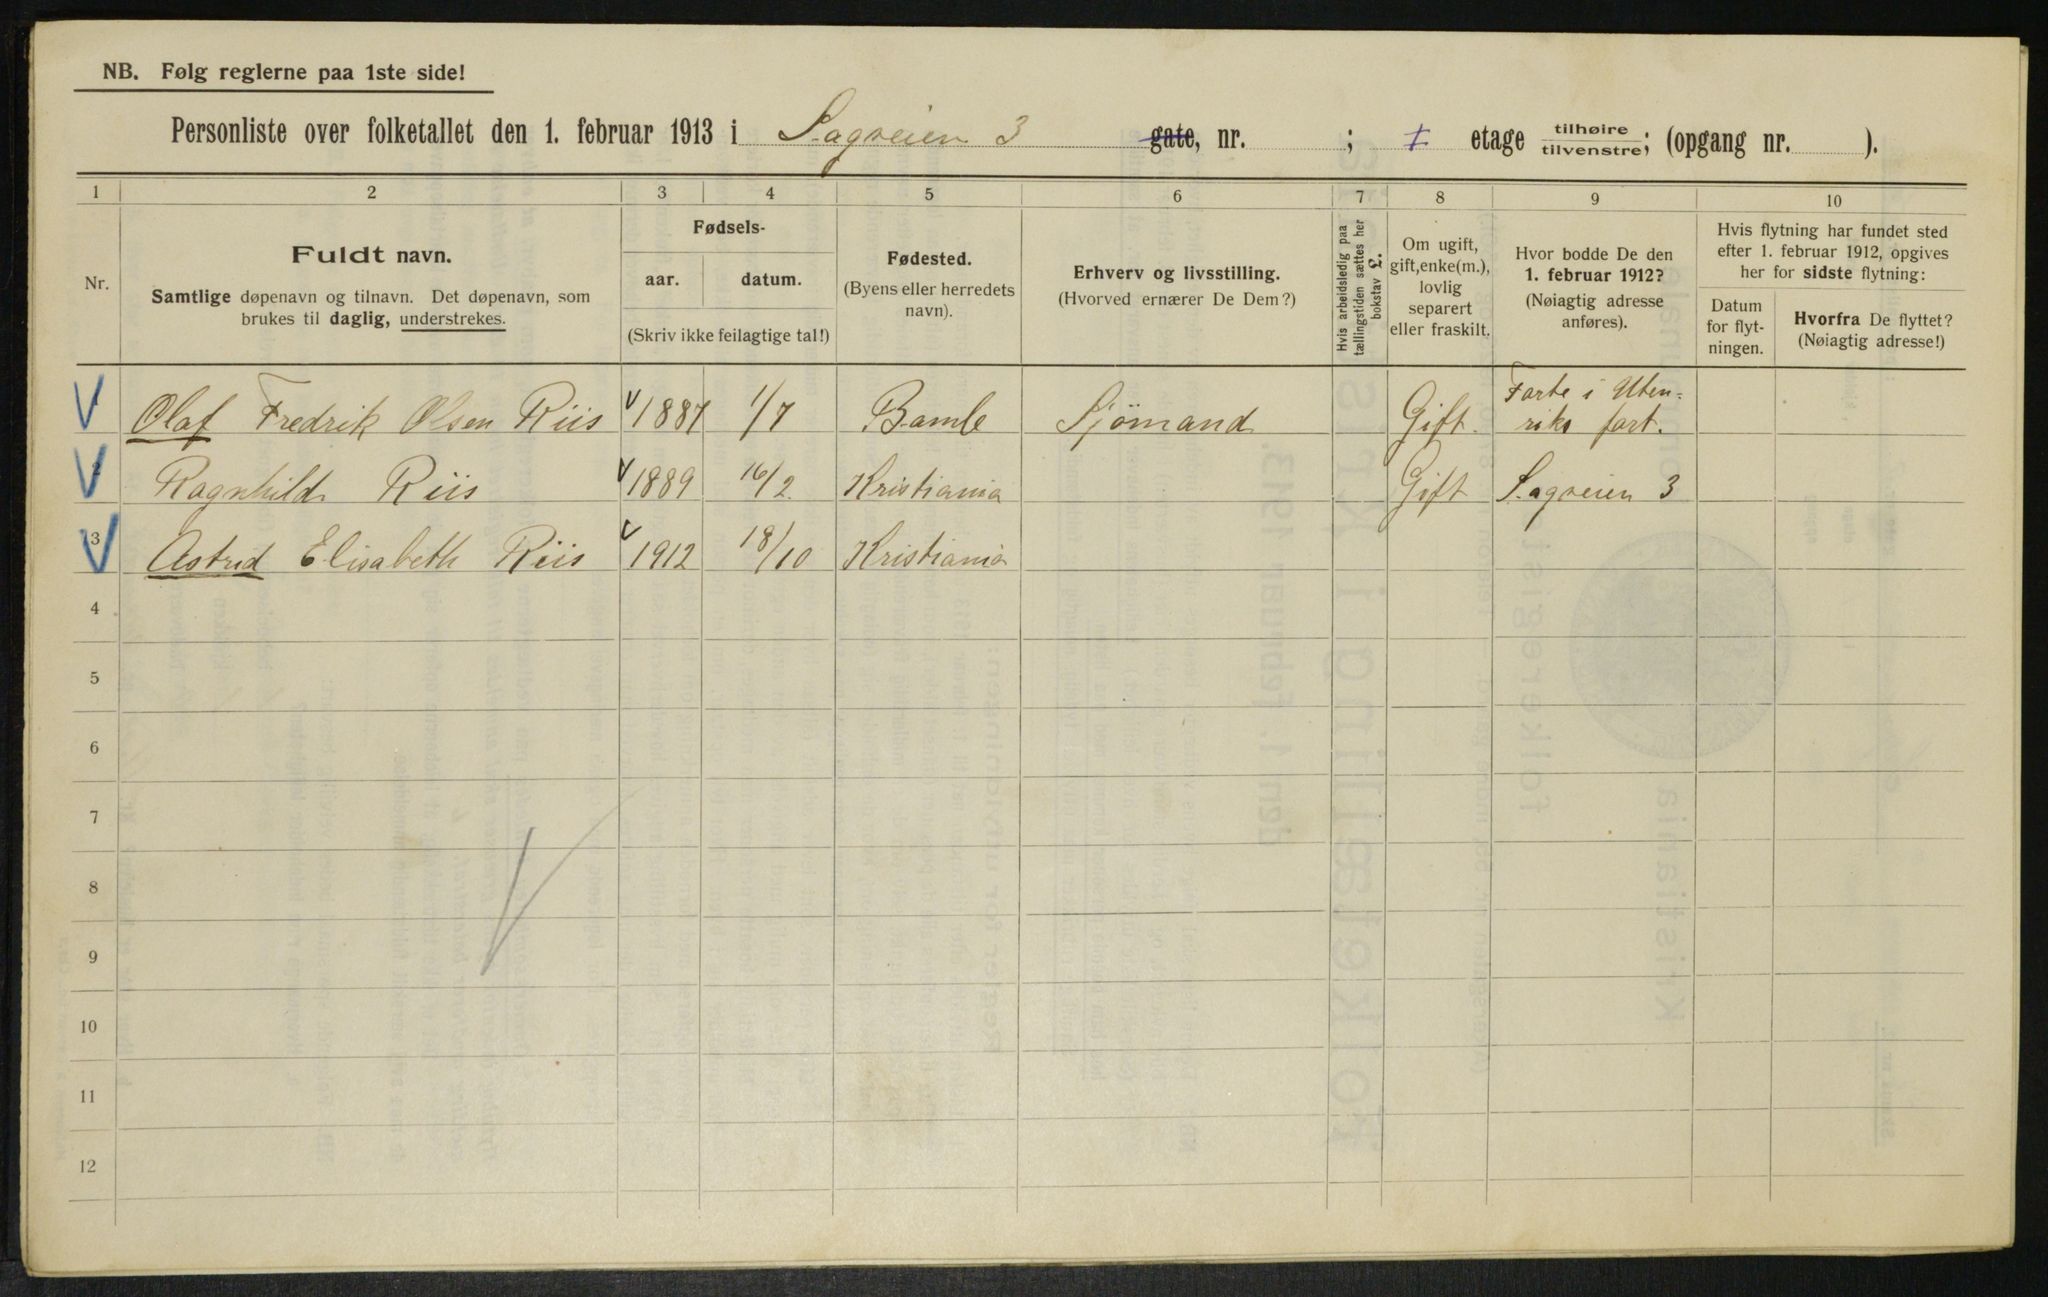 NB. Følg reglerne paa 1ste side!
Personliste over folketallet den 1. februar 1913 i Sagveien 3 gate, nr. ; I etage tilhøire tilvenstre; (opgang nr. ).
1 2 3 4 5 6 7 8 9 10
Nr.
Fuldt navn.
Samtlige døpenavn og tilnavn. Det døpenavn, som
brukes til daglig, understrekes.
Fødsels-
aar. datum.
(Skriv ikke feilagtige tal!)
Fødested.
(Byens eller herredets
navn).
Erhverv og livsstilling.
(Hvorved ernærer De Dem?)
Hvis arbeidsledig paa
tællingstiden sættes her
bokstav L.
Om ugift,
gift, enke(m.),
lovlig
separert
eller fraskilt.
Hvor bodde De den
1. februar 1912?
(Nøiagtig adresse
anføres).
Hvis flytning har fundet sted
efter 1. februar 1912, opgives
her for sidste flytning:
Datum
for flyt-
ningen.
Hvorfra De flyttet?
(Nøiagtig adresse!)
1 Olaf Fredrik Olsen Riis 1887 1/7 Bamle Sjömand Gift. Farte i Uten-
riks fart.
2 Ragnhild Riis 1889 16/2 Kristiania Gift Sagveien 3
3 Astrid Elisabeth Riis 1912 18/10 Kristiania
4
5
6
7
8
9
10
11
12